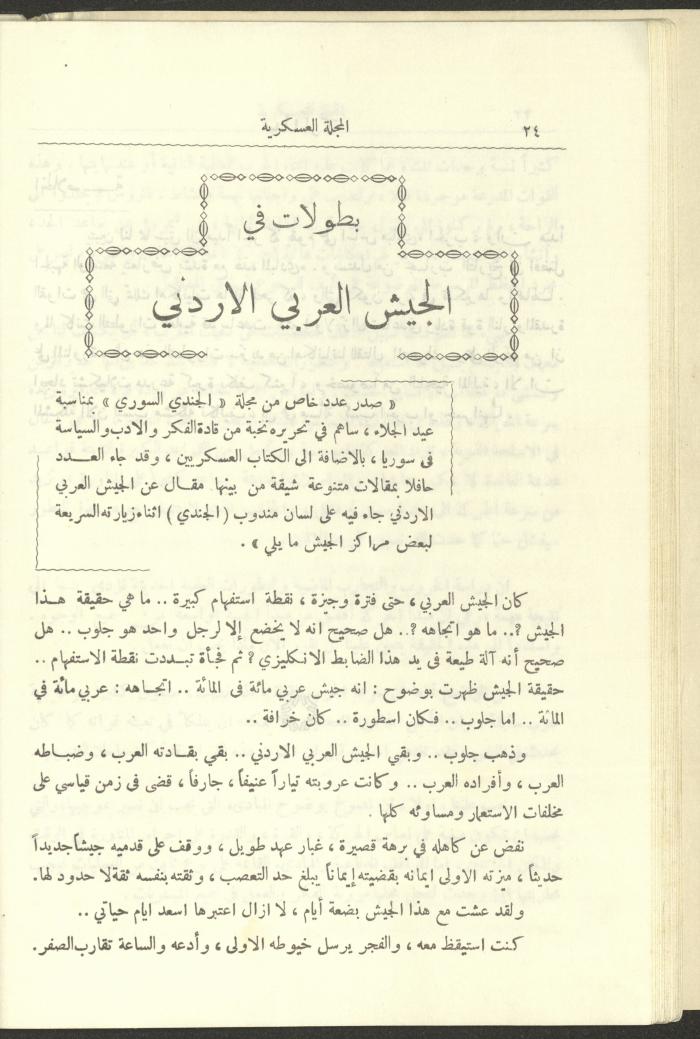 ٢٤
المجلة العسكرية
بطولات في
الجيش العربي الاردني
« صدر عدد خاص من مجلة « الجندي السوري » بمناسبة
عيد الجلاء ، ساهم في تحريره نخبة من قادة الفكر والادب والسياسة
في سوريا ، بالاضافة الى الكتاب العسكريين ، وقد جاء العــدد
حافلا بمقالات متنوعة شيقة من بينها مقــال عن الجيش العربي
الاردني جاء فيه على لسان مندوب ( الجندي ) اثناء زيارته السريعة
لبعض مراكز الجيش ما يلي » .
كان الجيش العربي ، حتى فترة وجيزة ، نقطة استفهام كبيرة .. ما هي حقيقة هــذا
الجيش ؟.. ما هو اتجاهه ؟.. هل صحيح انه لا يخضع إلا لرجل واحد هو جلوب .. هل
صحيح أنه آلة طيعة في يد هذا الضابط الانكليزي ؟ ثم فجأة تبــددت نقطة الاستفهام ..
حقيقة الجيش ظهرت بوضوح : انه جيش عربي مائة في المائة .. اتجــاهه : عربي مائة في
المائة .. اما جلوب .. فكان اسطورة .. كان خرافة ..
وذهب جلوب .. وبقي الجيش العربي الاردني .. بقي بقــادته العرب ، وضبــاطه
العرب ، وأفراده العرب .. وكانت عروبته تياراً عنيفاً ، جارفاً ، قضى في زمن قياسي على
مخلفات الاستعمار ومساوئه كلها .
نفض عن كاهله في برهة قصيرة ، غبار عهد طويل ، ووقف على قدميه جيشاً جديداً
حديثاً ، ميزته الاولى ايمانه بقضيته إيماناً يبلغ حد التعصب ، وثقته بنفسه ثقة لا حدود لها.
ولقد عشت مع هذا الجيش بضعة أيام ، لا ازال اعتبرها اسعد ايام حياتي ..
كنت استيقظ معه ، والفجر يرسل خيوطه الاولى ، وأدعه والساعة تقارب الصفر.